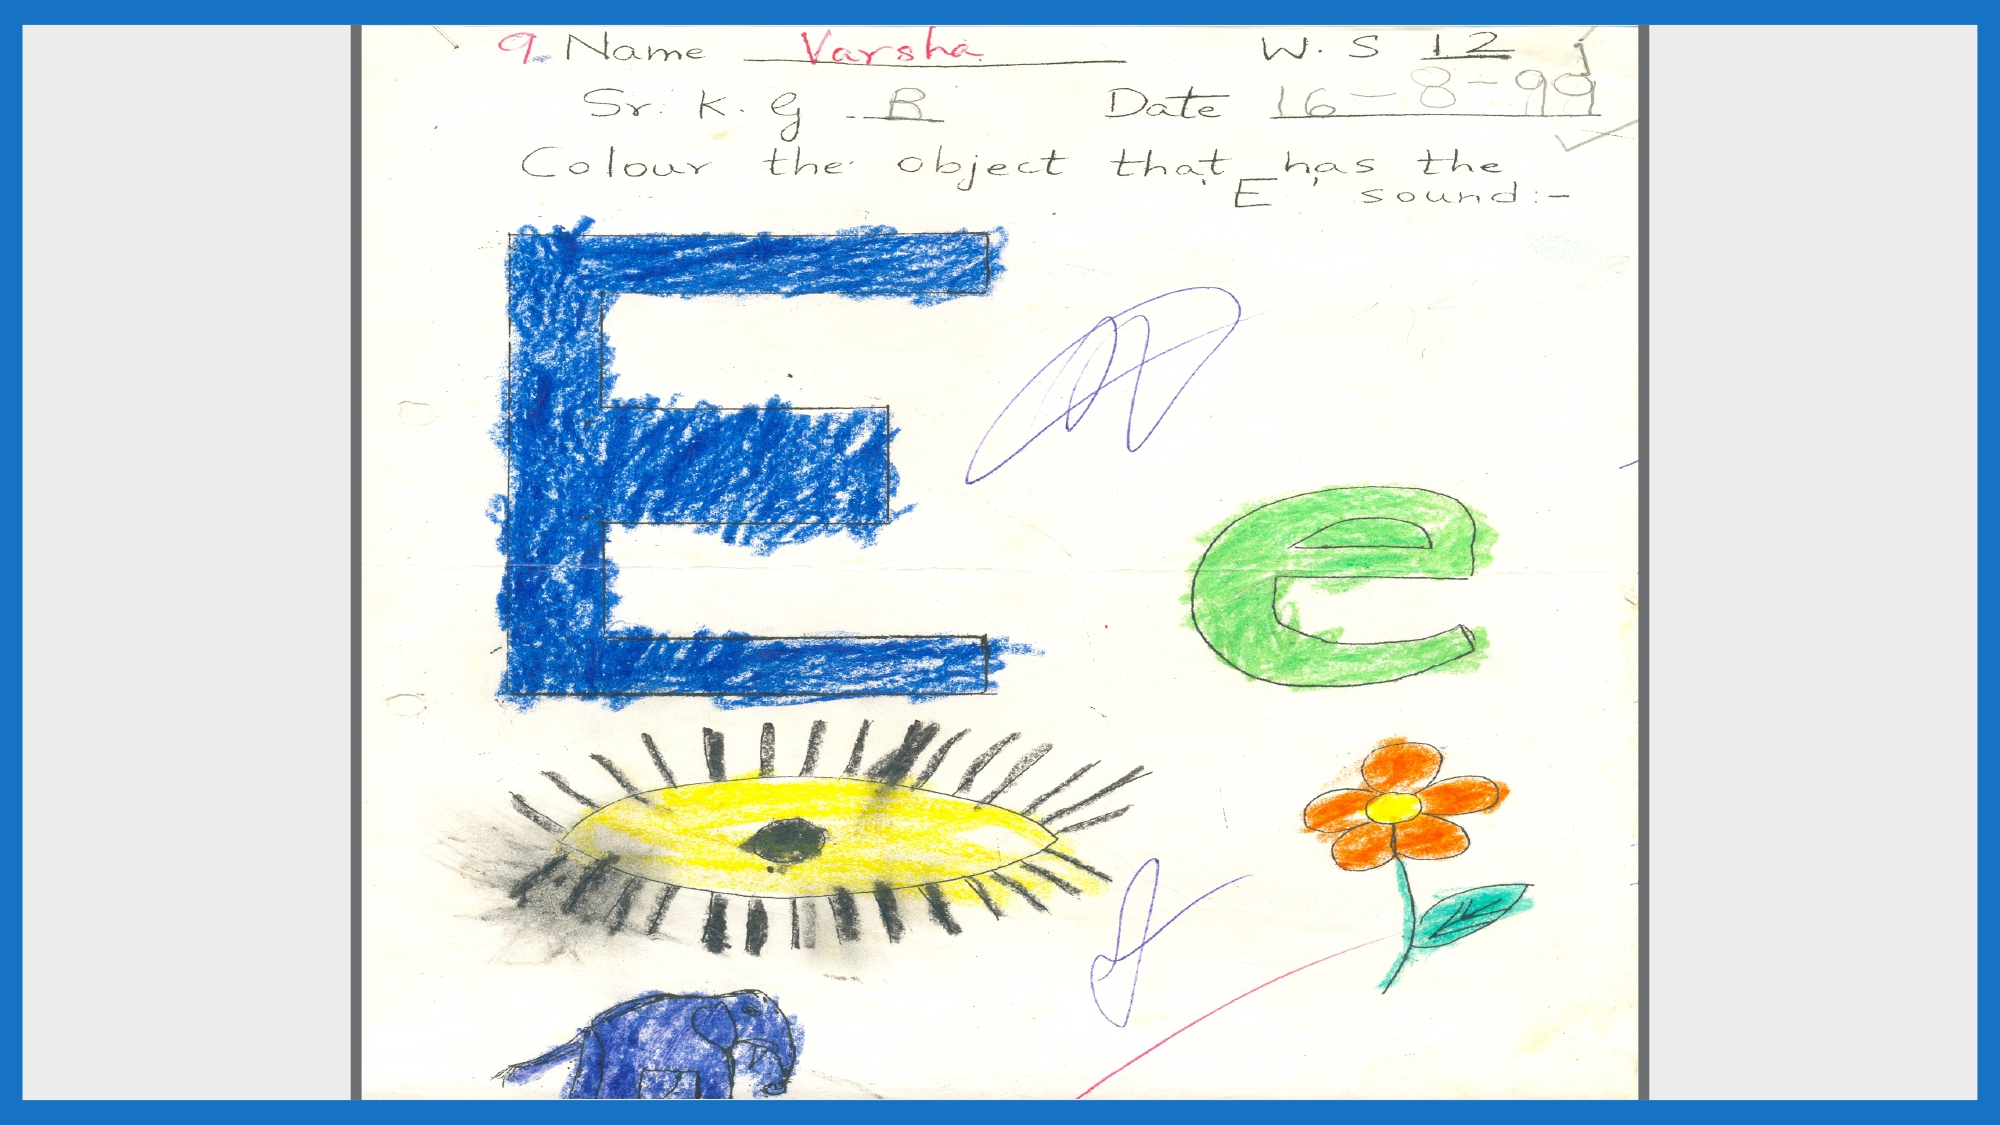 9. Name Varsha W. S 12
Sr. K. G. B Date 16-8-99
Colour the object that has the
'E' sound:-
E
e